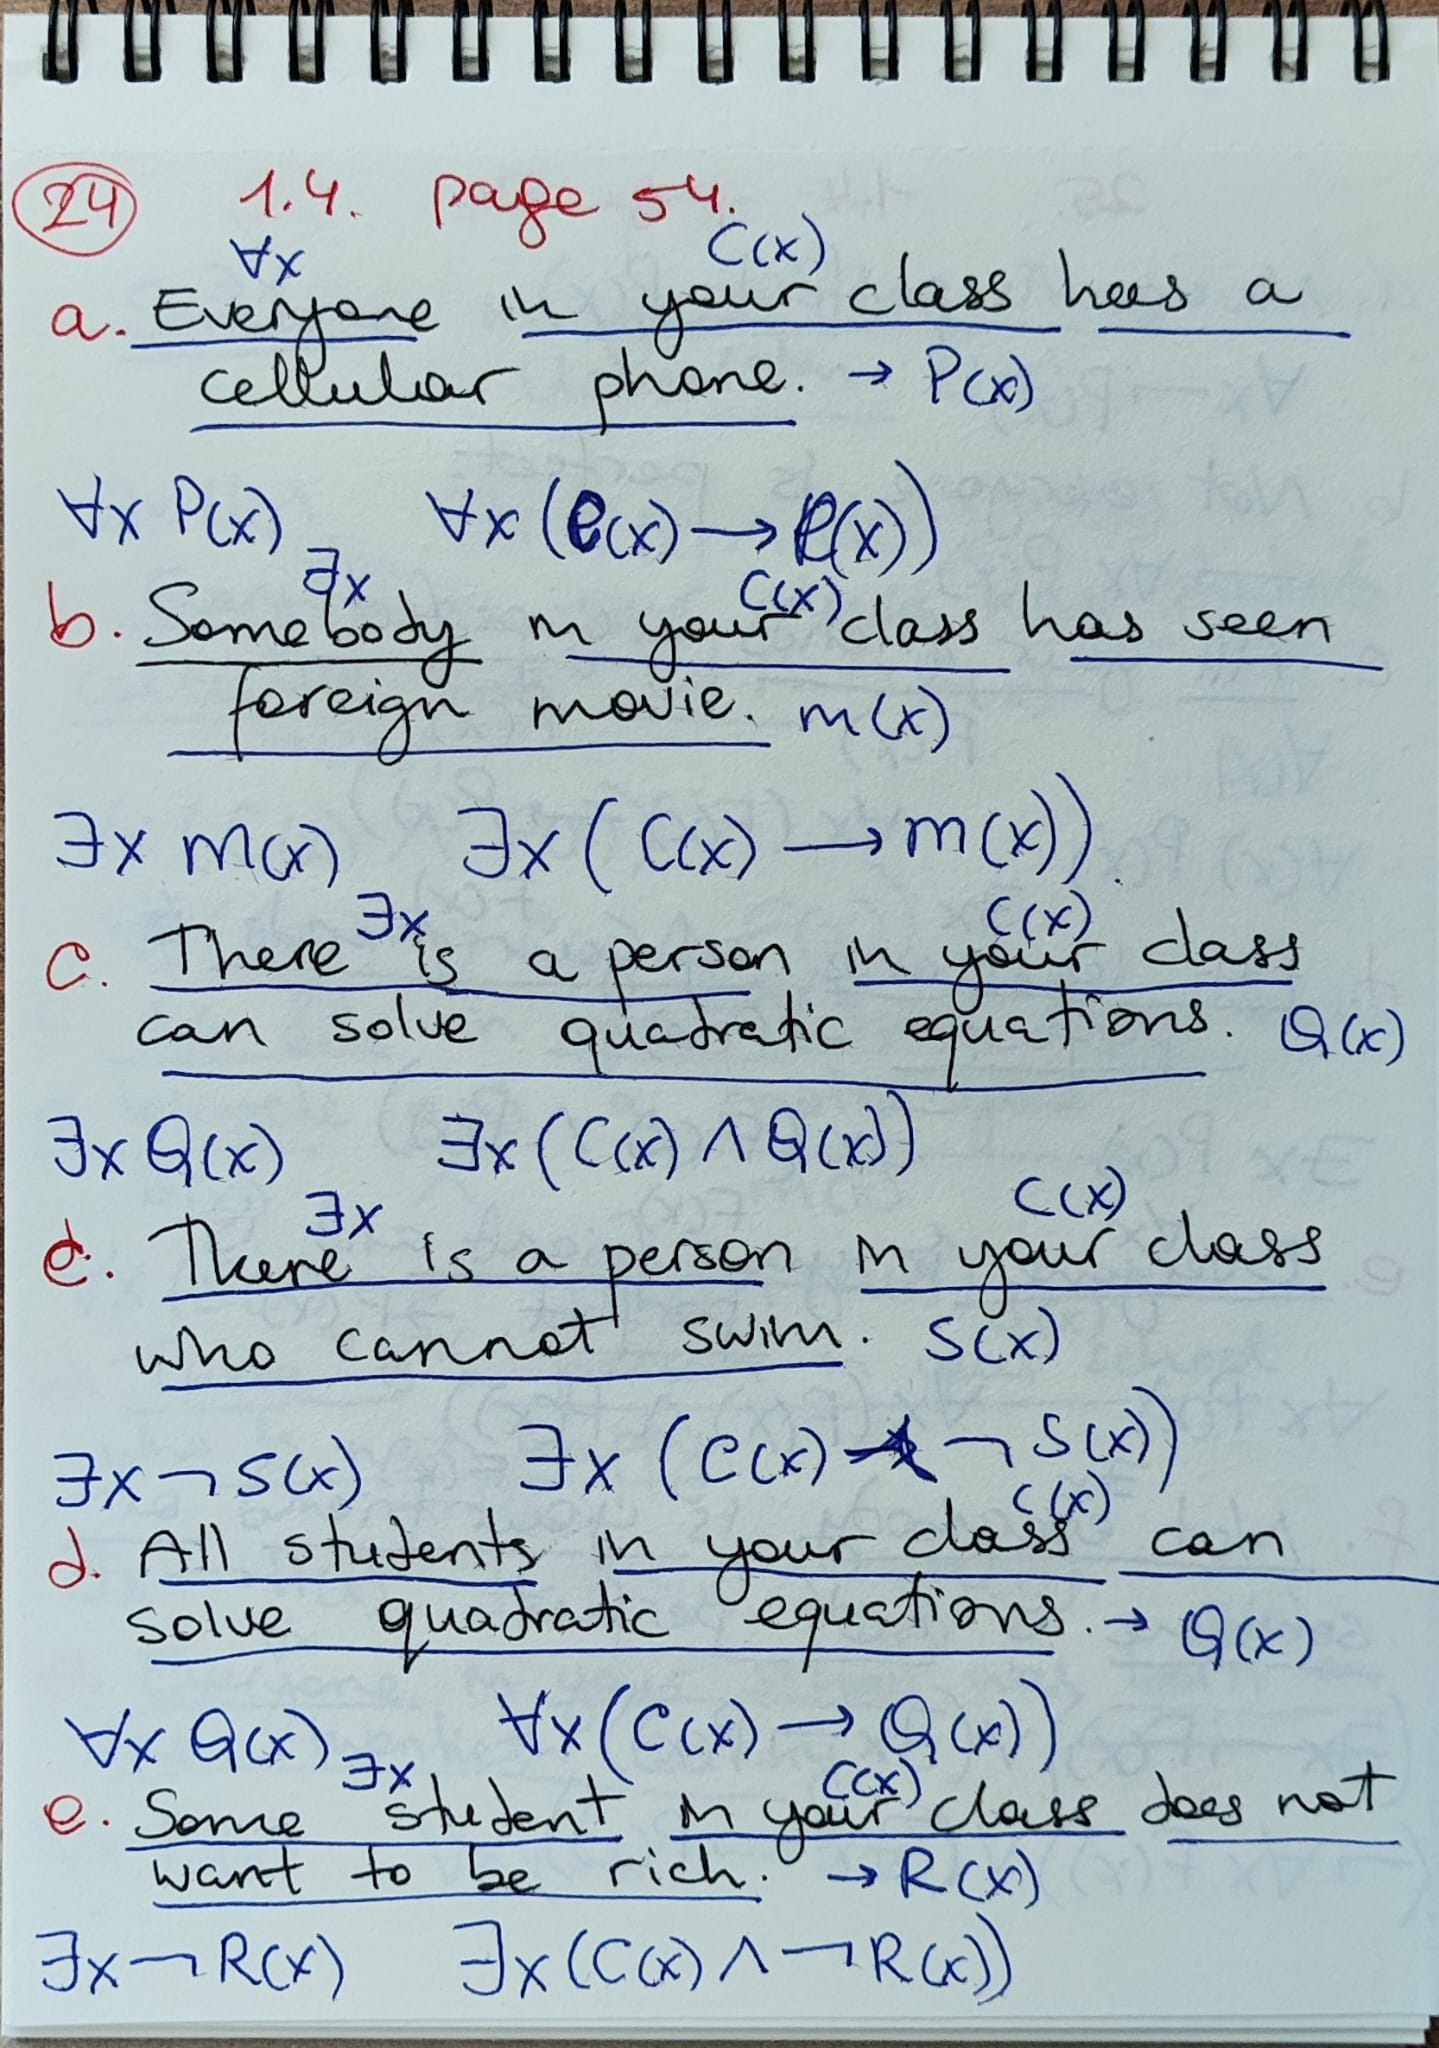 24 1.4. page 54.
∀x C(x)
a. Everyone in your class has a
cellular phone. → P(x)
∀x P(x) ∀x (C(x) → P(x))
∃x C(x)
b. Somebody in your class has seen
foreign movie. M(x)
∃x M(x) ∃x (C(x) → M(x)).
∃x C(x)
c. There is a person in your class
can solve quadratic equations. Q(x)
∃x Q(x) ∃x (C(x) ∧ Q(x))
∃x C(x)
d. There is a person in your class
who cannot swim. S(x)
∃x ¬ S(x) ∃x (C(x) ¬ S(x))
C(x)
d. All students in your class can
solve quadratic equations. → Q(x)
∀x Q(x) ∀x (C(x) → Q(x))
∃x C(x)
e. Some student in your class does not
want to be rich. → R(x)
∃x ¬ R(x) ∃x (C(x) ∧ ¬ R(x))